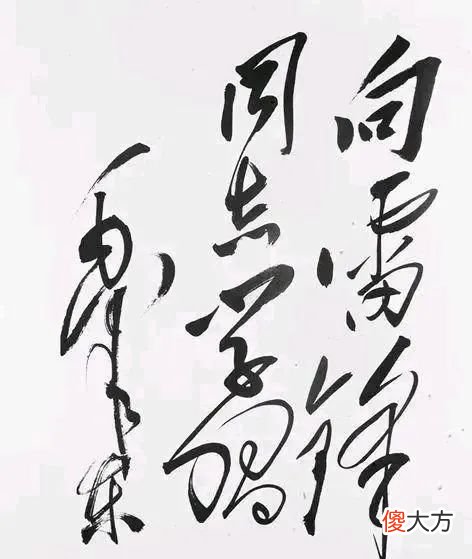 向雷锋
同志学习
毛泽东
傻大方